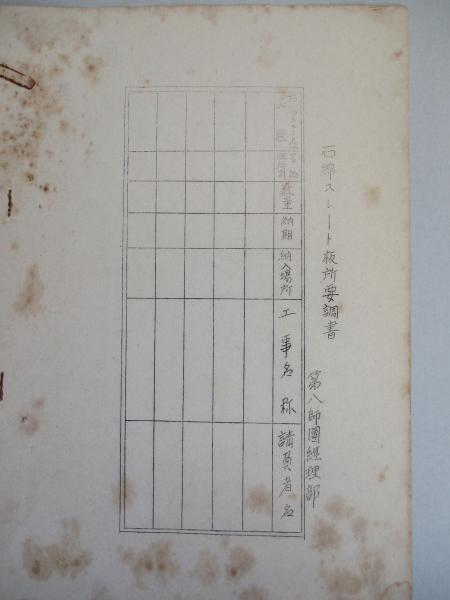 石綿スレート板所要調書
第八師團經理部
數量
納期
納入場所
工事名称
請負者名